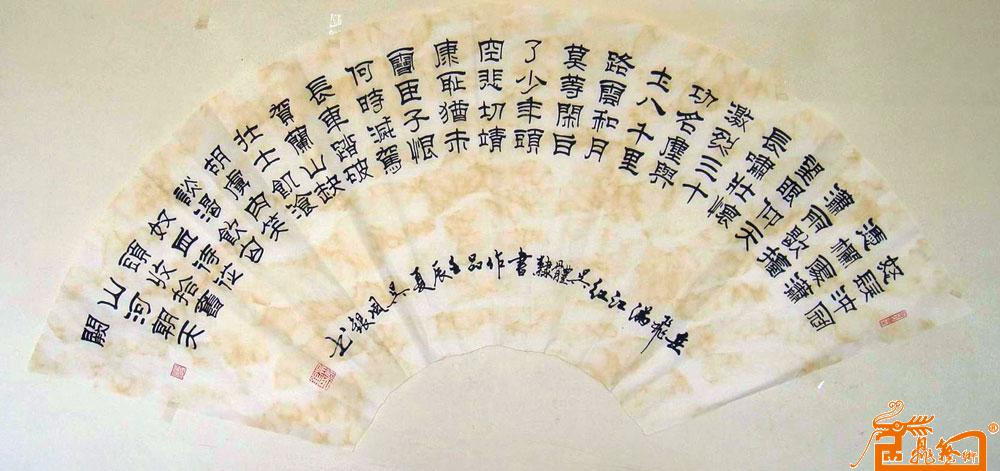 怒髮冲冠
憑欄處瀟
瀟雨歇抬
望眼仰天
長嘯壯懷
激烈三十
功名塵與
土八千里
路雲和月
莫等閑白
了少年頭
空悲切靖
康耻猶未
雪臣子恨
何時滅駕
長車踏破
賀蘭山缺
壯士飢飡
胡虜肉笑
談渴飲匈
奴血待從
頭收拾舊
山河朝天
闕
岳飛满江红吴體隸書作品壬辰夏吴凤銀书